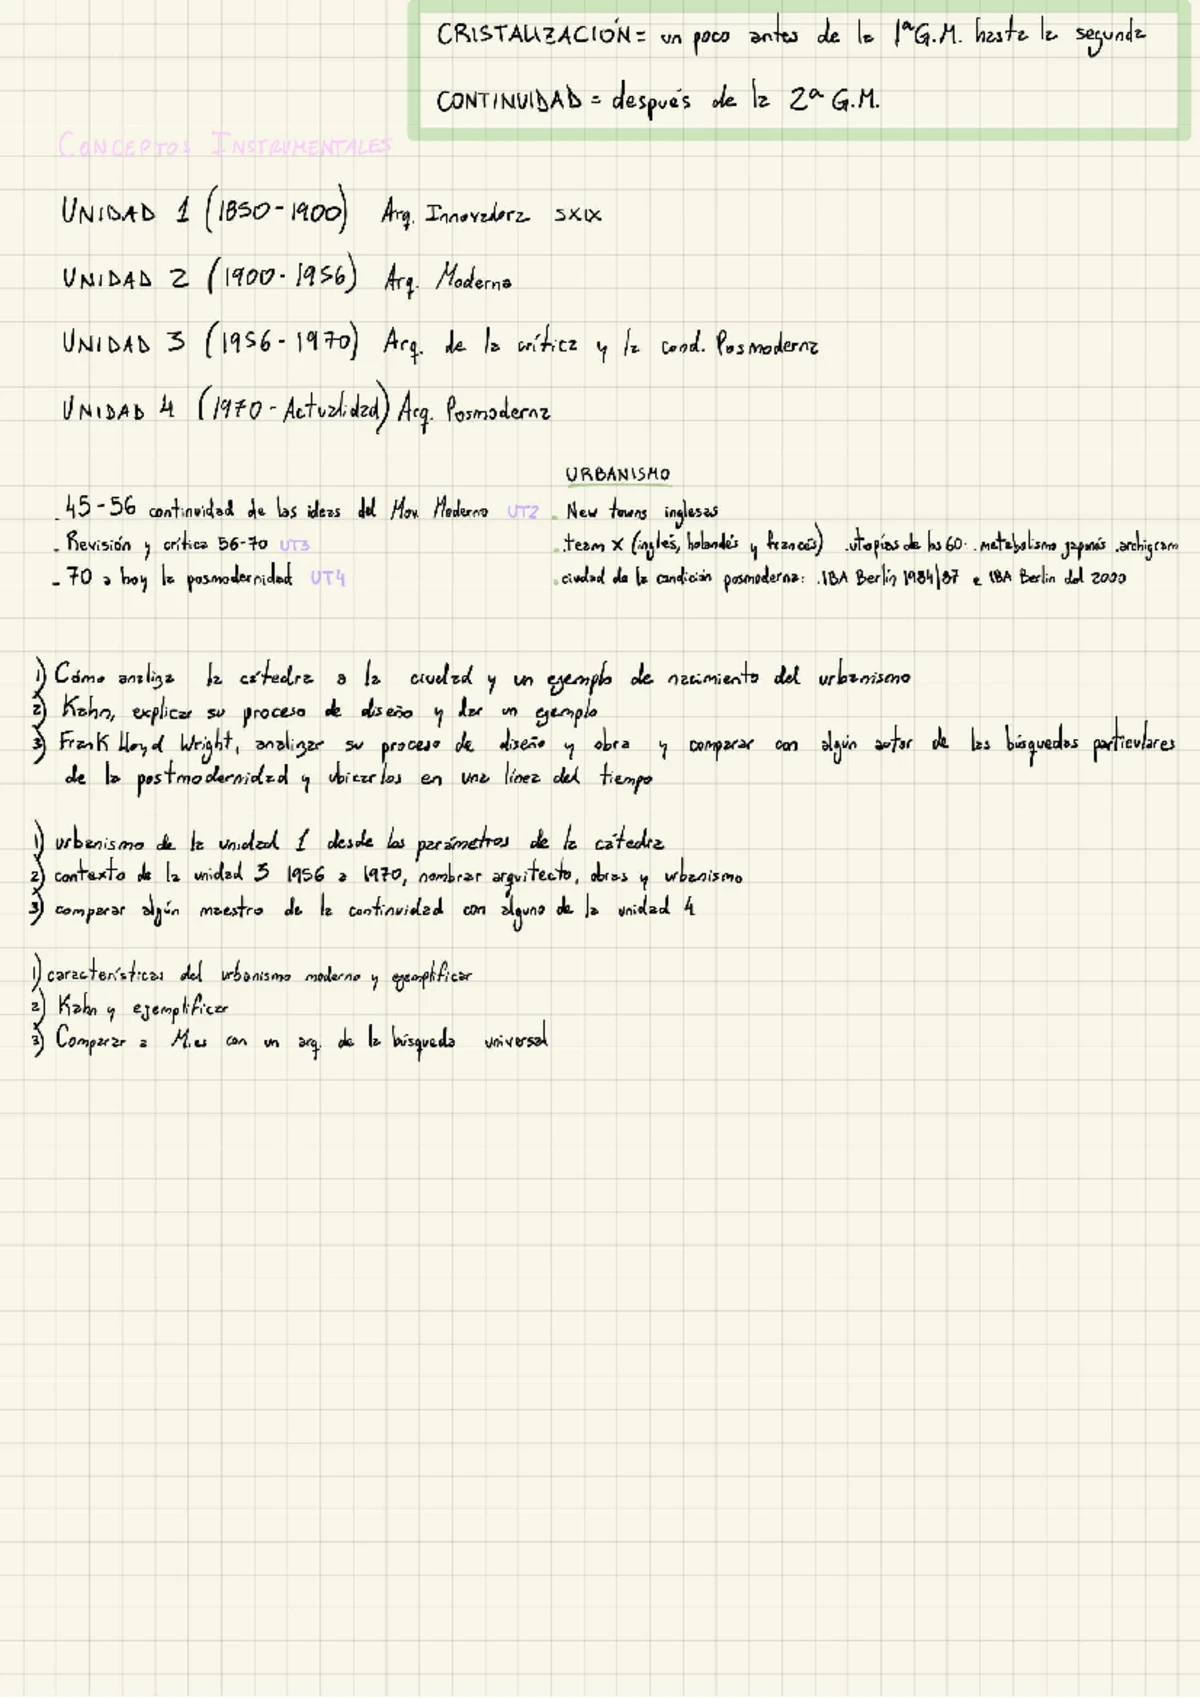 CRISTALIZACIÓN = un poco antes de la 1ª G.M. hasta la segunda
CONTINUIDAD = después de la 2ª G.M.
CONCEPTOS INSTRUMENTALES
UNIDAD 1 (1850-1900) Arq. Innovadora SXIX
UNIDAD 2 (1900-1956) Arq. Moderna
UNIDAD 3 (1956-1970) Arq. de la crítica y la cond. Posmoderna
UNIDAD 4 (1970-Actualidad) Arq. Posmoderna
URBANISMO
- 45-56 continuidad de las ideas del Mov. Moderno UT2 . New towns inglesas
- Revisión y crítica 56-70 UT3 . team X (inglés, holandés y francés) .utopías de los 60: .metabolismo japonés .archigram
- 70 a hoy la posmodernidad UT4 . ciudad de la condición posmoderna: .IBA Berlín 1984/87 e IBA Berlin del 2000
1) Cómo analiza la cátedra a la ciudad y un ejemplo de nacimiento del urbanismo
2) Kahn, explicar su proceso de diseño y dar un ejemplo
3) Frank Lloyd Wright, analizar su proceso de diseño y obra y comparar con algún autor de las búsquedas particulares
de la postmodernidad y ubicarlos en una línea del tiempo
1) urbanismo de la unidad 1 desde los parámetros de la cátedra
2) contexto de la unidad 3 1956 a 1970, nombrar arquitecto, obras y urbanismo
3) comparar algún maestro de la continuidad con alguno de la unidad 4
1) características del urbanismo moderno y ejemplificar
2) Kahn y ejemplificar
3) Comparar a Mies con un arq. de la búsqueda universal